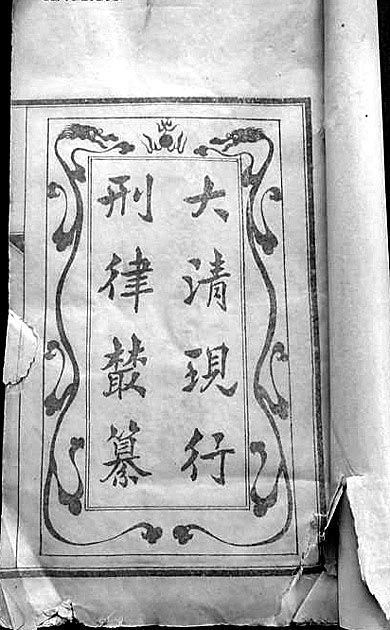 大清現行
刑律叢纂